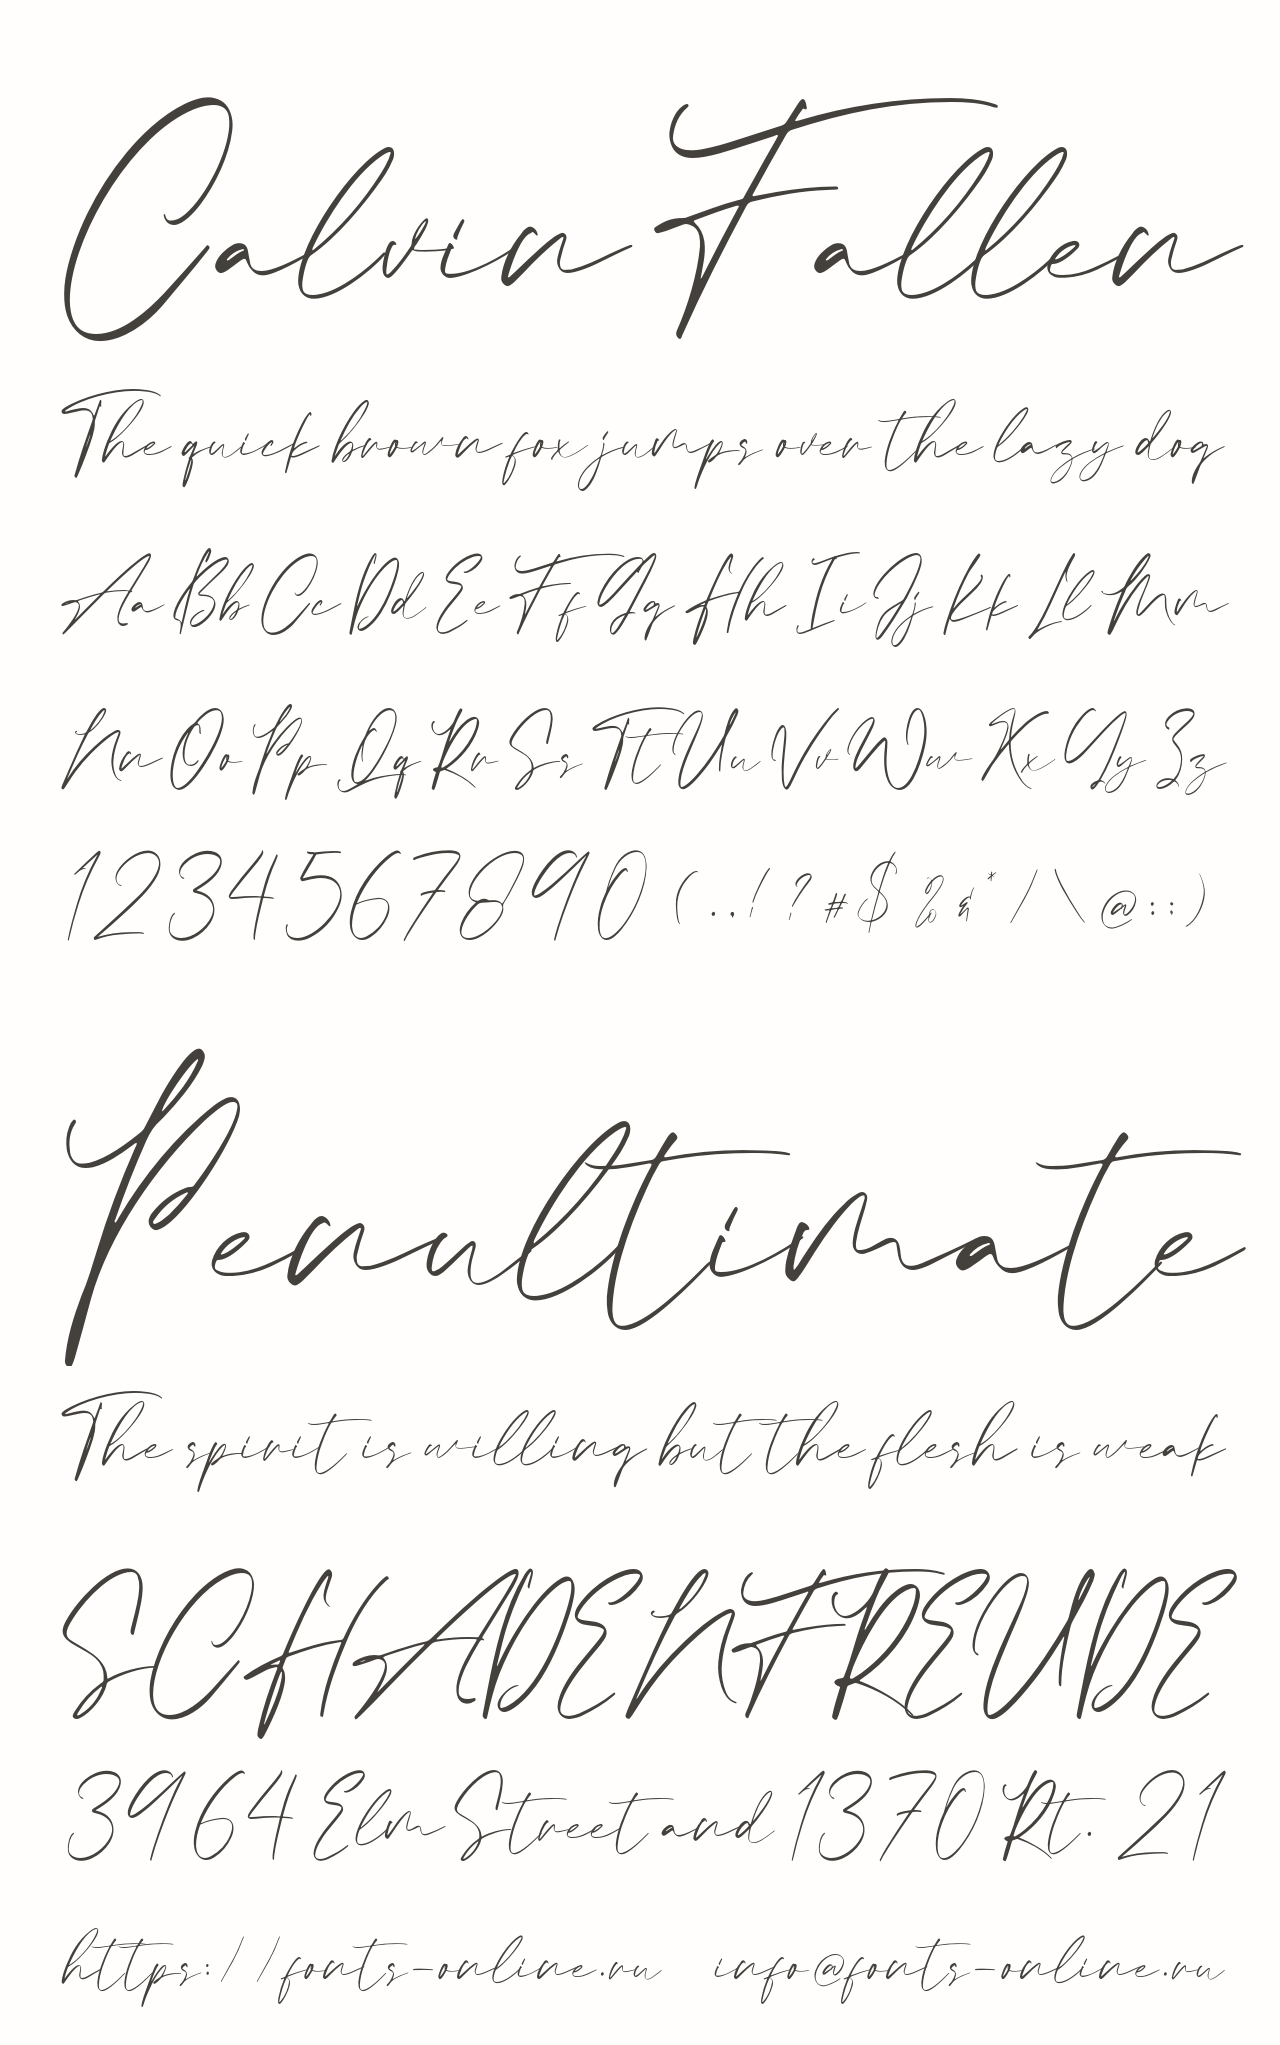 Calvin Fallen
The quick brown fox jumps over the lazy dog
Aa Bb Cc Dd Ee Ff Gg Hh Ii Jj Kk Ll Mm
Nn Oo Pp Qq Rr Ss Tt Uu Vv Ww Xx Yy Zz
1234567890 (.,! ? #$ % &* / \ @:;)
Penultimate
The spirit is willing but the flesh is weak
SCHADENFREUDE
3964 Elm Street and 1370 Rt. 21
https://fonts-online.ru info@fonts-online.ru